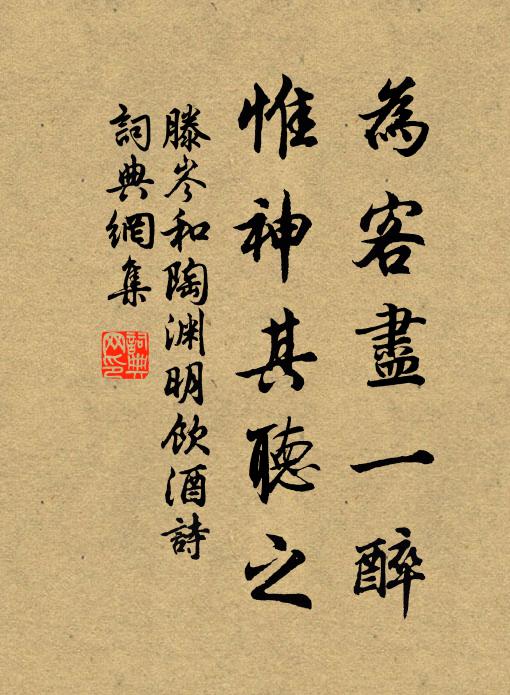 為客盡一醉
惟神其聽之
滕岑和陶渊明飲酒詩
詞典網集
詞典
网印